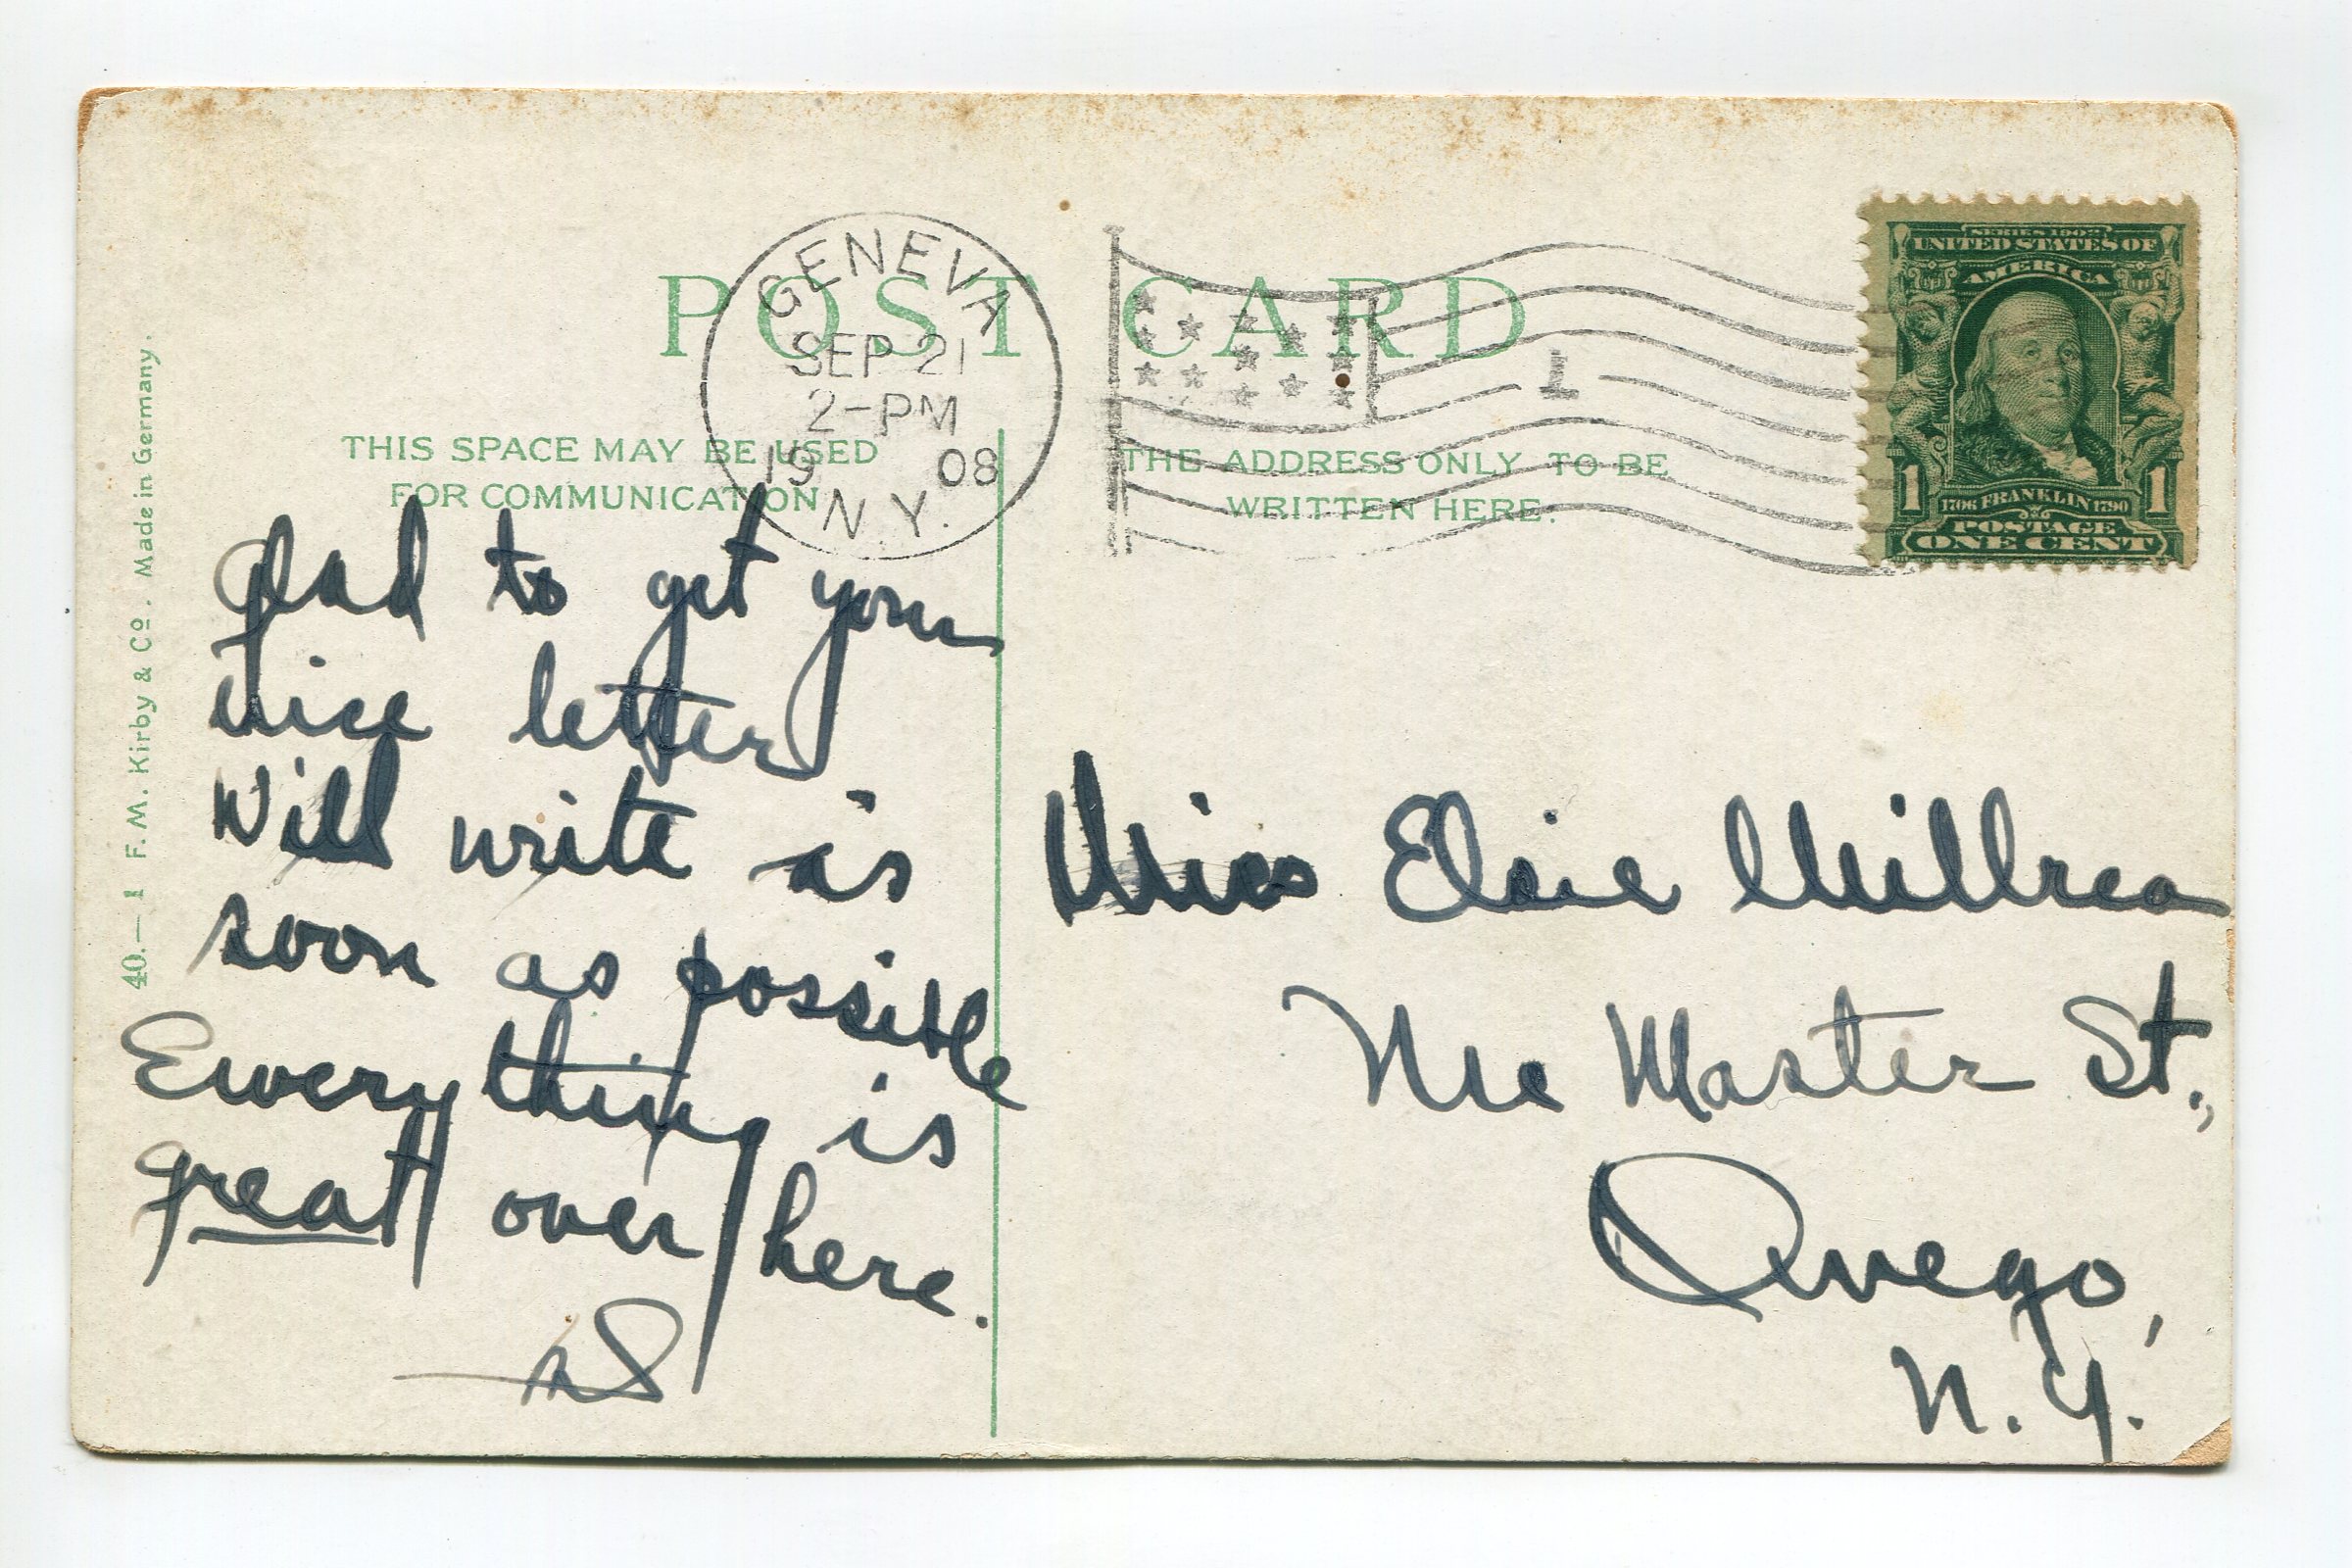 POST CARD
GENEVA
SEP 21
2-PM
19 08
N.Y.
1
SERIES 1902
UNITED STATES OF
AMERICA
1 1
1706 FRANKLIN 1790
POSTAGE
ONE CENT
THIS SPACE MAY BE USED
FOR COMMUNICATION
THE ADDRESS ONLY TO BE
WRITTEN HERE.
40.—1 F. M. Kirby & Co. Made in Germany.
Glad to get your
nice letter
Will write as
soon as possible
Every thing is
great over here.
Miss Elsie Millrea
Mc Master St.,
Owego,
N.Y.